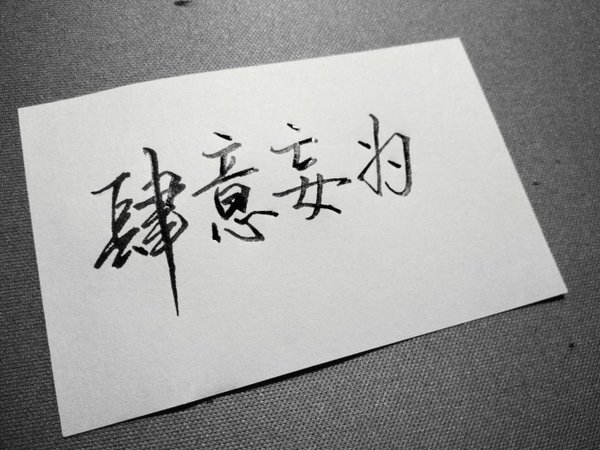 肆意妄为